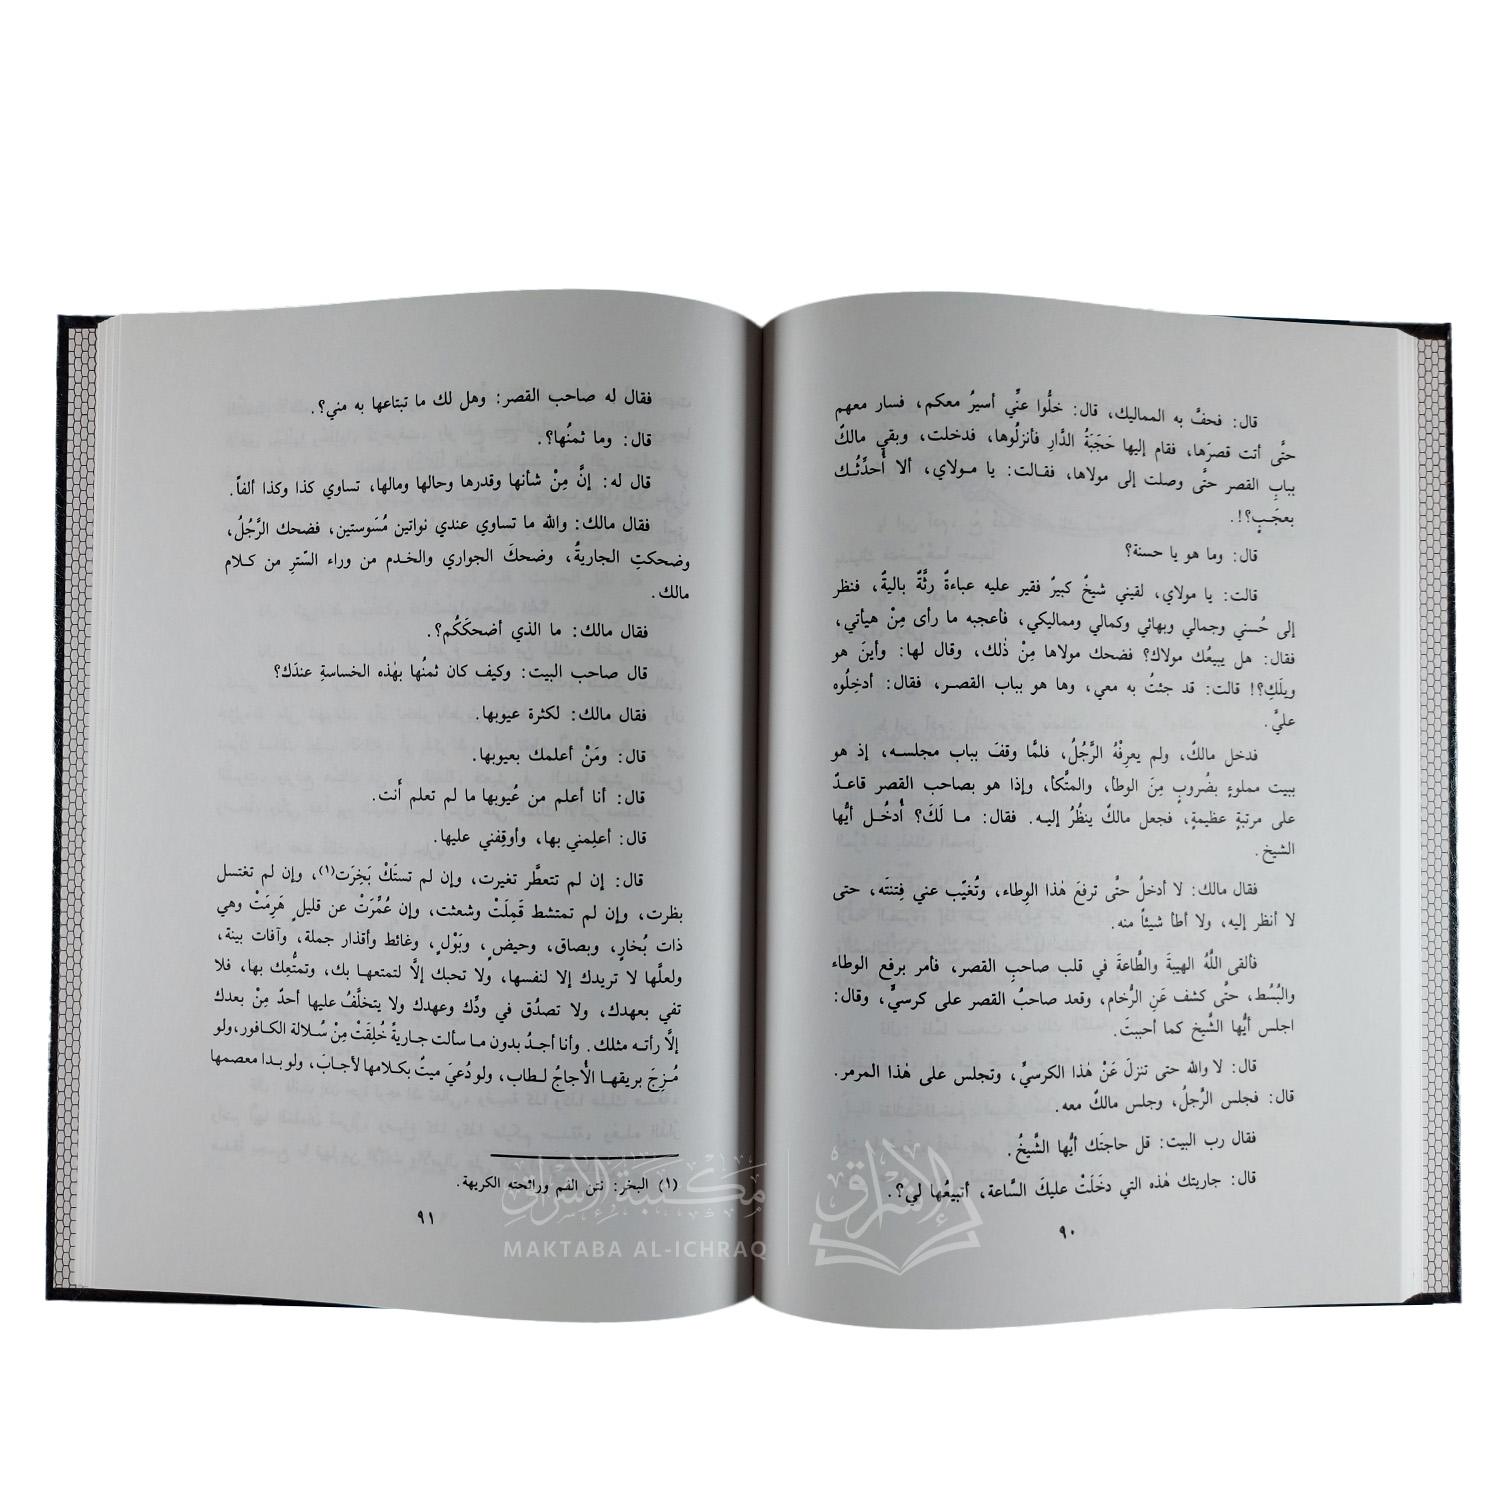 قال: فحفَّ به المماليك، قال: خلُّوا عنِّي أسيرُ معكم، فسار معهم
حتَّى أتت قصرَها، فقام إليها حَجَبَةُ الدَّارِ فأنزلُوها، فدخلت، وبقي مالكٌ
ببابِ القصر حتَّى وصلت إلى مولاها، فقالت: يا مولاي، ألا أُحدِّثُك
بعجَبٍ؟!.
قال: وما هو يا حسنة؟
قالت: يا مولاي، لقيني شيخٌ كبيرٌ فقير عليه عباءةٌ رثَّةٌ باليةٌ، فنظر
إلى حُسني وجمالي وبهائي وكمالي ومماليكي، فأعجبه ما رأى مِنْ هيأتي،
فقال: هل يبيعُك مولاك؟ فضحك مولاها مِنْ ذٰلك، وقال لها: وأينَ هو
ويلَكِ؟! قالت: قد جئتُ به معي، وها هو بباب القصر، فقال: أدخِلُوه
عليَّ.
فدخل مالكٌ، ولم يعرِفْهُ الرَّجُلُ، فلمَّا وقفَ بباب مجلسه، إذ هو
ببيت مملوءٍ بضُروبٍ مِنَ الوطأ، والمتُّكأ، وإذا هو بصاحب القصر قاعدٌ
على مرتبةٍ عظيمةٍ، فجعل مالكٌ ينظُرُ إليه. فقال: ما لَكَ؟ أُدخُل أيُّها
الشيخ.
فقال مالك: لا أدخلُ حتَّى ترفعَ هٰذا الوِطاء، وتُغيّب عني فِتنتَه، حتى
لا أنظر إليه، ولا أطأ شيئاً منه.
فألقى اللَّهُ الهيبةَ والطَّاعةَ في قلب صاحبِ القصر، فأمر برفع الوطاء
والبُسُط، حتَّى كشف عَنِ الرُّخام، وقعد صاحبُ القصر على كرسيٍّ، وقال:
اجلس أيُّها الشَّيخ كما أحببتَ.
قال: لا والله حتى تنزلَ عَنْ هٰذا الكرسيِّ، وتجلس على هٰذا المرمر.
قال: فجلس الرَّجلُ، وجلس مالكٌ معه.
فقال رب البيت: قل حاجتَك أيُّها الشَّيخُ.
قال: جاريتك هٰذه التي دخَلَتْ عليكَ السَّاعة، أتبيعُها لي؟.
٩٠
فقال له صاحب القصر: وهل لك ما تبتاعها به مني؟.
قال: وما ثمنُها؟.
قال له: إنَّ مِنْ شأنها وقدرها وحالها ومالها، تساوي كذا وكذا ألفاً.
فقال مالك: والله ما تساوي عندي نواتين مُسَوستين، فضحك الرَّجُلُ،
وضحكتِ الجاريةُ، وضحكَ الجواري والخدم من وراء السّترِ من كلام
مالك.
فقال مالك: ما الذي أضحكَكُم؟.
قال صاحب البيت: وكيف كان ثمنُها بهٰذه الخساسةِ عندَك؟
فقال مالك: لكثرة عيوبها.
قال: ومَنْ أعلمك بعيوبها.
قال: أنا أعلم من عُيوبها ما لم تعلم أَنت.
قال: أعلِمني بها، وأوقِفني عليها.
قال: إن لم تتعطَّر تغيرت، وإن لم تستَكْ بَخِرَت(١)، وإن لم تغتسل
بظرت، وإن لم تمتشط قَمِلَتْ وشعثت، وإن عُمِّرَتْ عن قليلٍ هَرِمَتْ وهي
ذات بُخارٍ، وبصاق، وحيضٍ، وبَوْلٍ، وغائط وأقذار جملة، وآفات بينة،
ولعلَّها لا تريدك إلا لنفسها، ولا تحبك إلَّا لتمتعها بك، وتمتُّعِك بها، فلا
تفي بعهدك، ولا تصدُق في ودِّك وعهدك ولا يتخلَّفُ عليها أحدٌ مِنْ بعدك
إلَّا رأته مثلك. وأنا أجدُ بدون ما سألت جاريةً خُلِقَتْ مِنْ سُلالة الكافور، ولو
مُزِجَ بريقها الأُجاجُ لطاب، ولو دُعيَ ميتٌ بكلامها لأجابَ، ولو بدا معصمها
(١) البخر: نتن الفم ورائحته الكريهة.
٩١
مكتبة الإشراق
MAKTABA AL-ICHRAQ
الإشراق